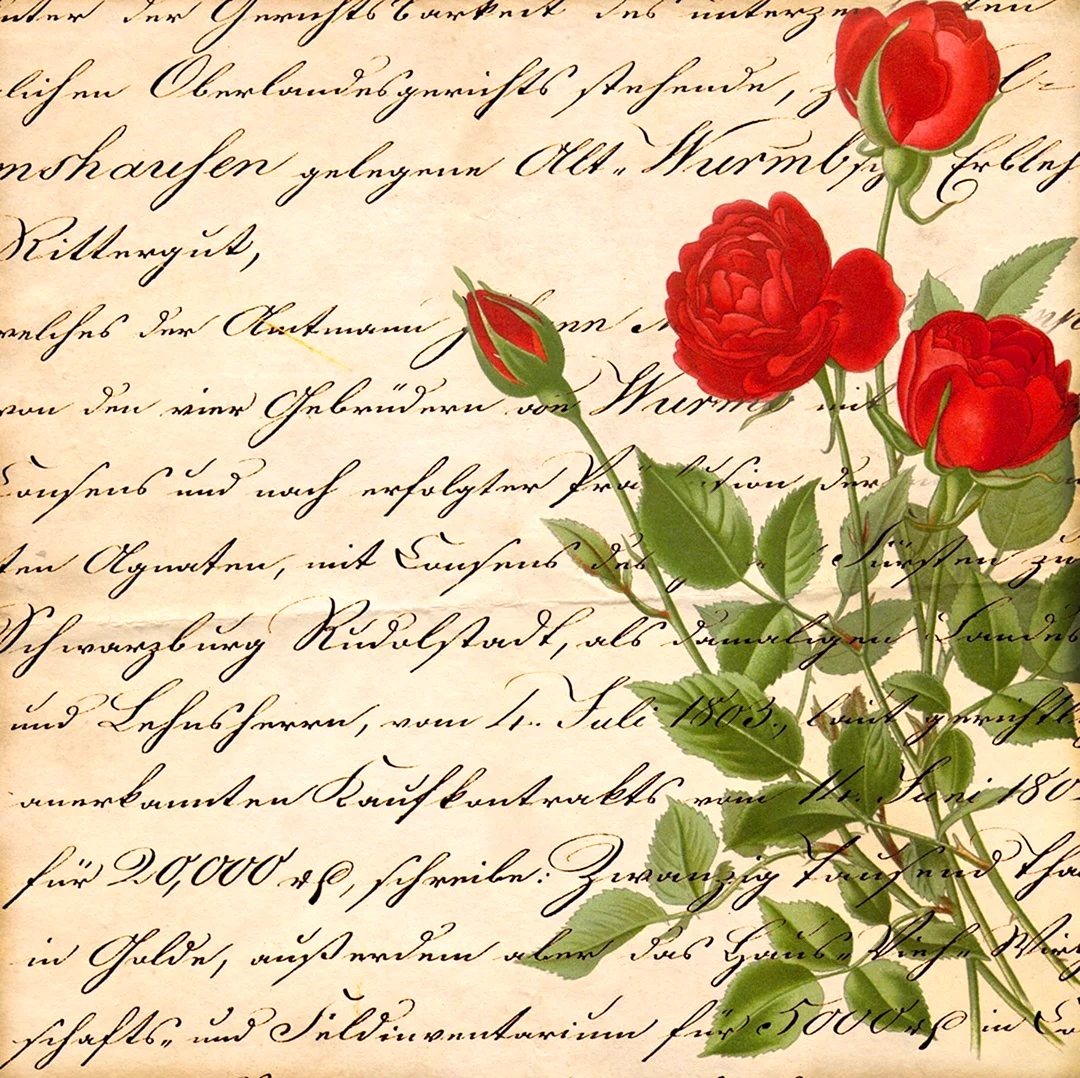 unter der Gerichtsbarkeit des
lichen Oberlandesgerichts stehende,
mshausen gelegene Alt- Wurmbsch Erbleh
Rittergut,
welches der Amtmann
von den vier Gebrüdern von Wurmb mit
Consens und nach erfolgter der
ten Agnaten, mit Consens des Fürsten zu
Schwarzburg Rudolstadt, als damaligen Landes
und Lehnsherrn, vom 4. Juli 1803., laut gerichtl
anerkannten Kaufkontrakts vom 14. Juni 180
für 20,000 rℓ, schreibe: Zwanzig Tausend Tha
in Golde, außerdem aber das Haus- Vieh- Wirth
schafts- und Feldinventarium für 5000 rℓ in